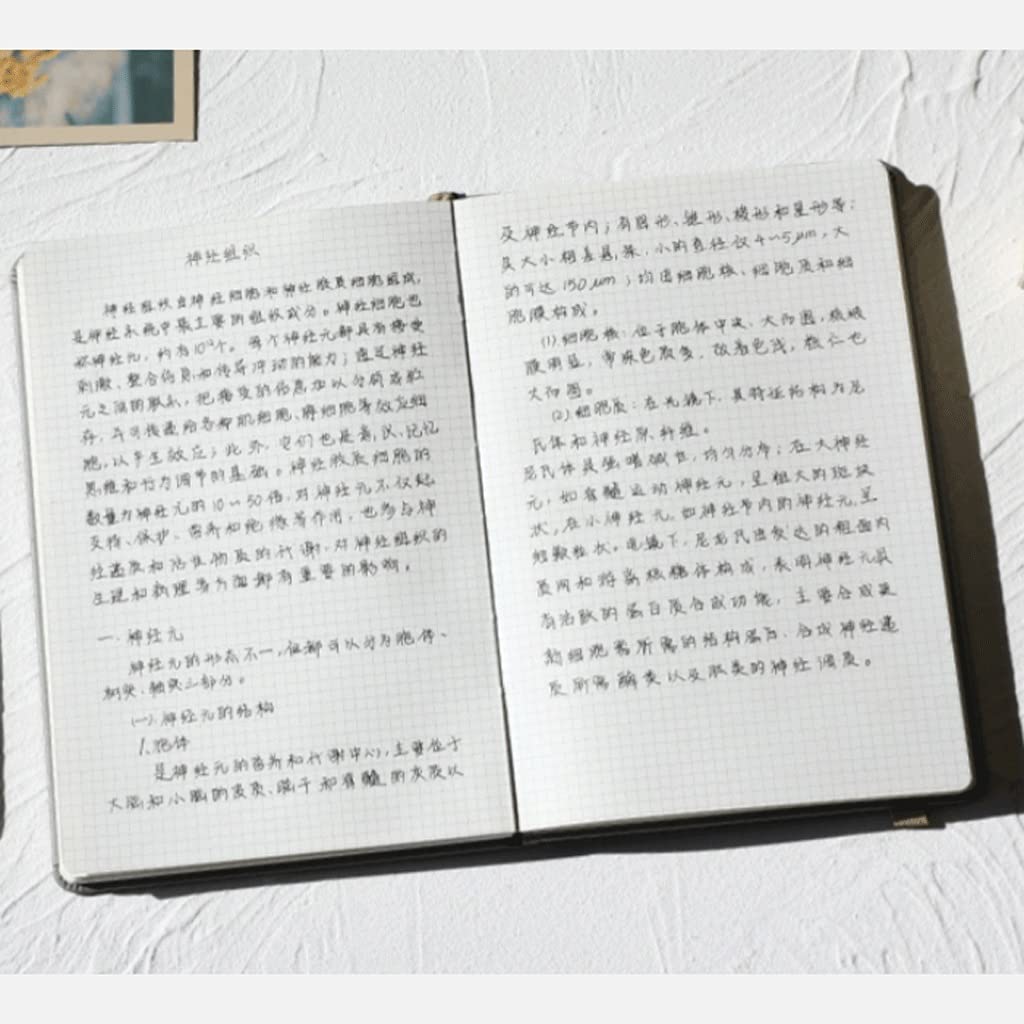 神经组织
神经组织由神经细胞和神经胶质细胞组成,
是神经系统中最主要的组织成分。神经细胞也
称神经元, 约有10¹²个。每个神经元都具有接受
刺激、整合信息和传导冲动的能力; 通过神经
元之间的联系, 把接受的信息加以分析或贮
存, 并可传递给各种肌细胞、腺细胞等效应细
胞, 以产生效应; 此外, 它们也是意识、记忆
思维和行为调节的基础。神经胶质细胞的
数量为神经元的10~50倍, 对神经元不仅起
支持、保护、营养和绝缘等作用, 也参与神
经递质和活性物质的代谢, 对神经组织的
生理和病理等方面都有重要的影响。
一、神经元
神经元的形态不一, 但都可以分为胞体、
树突、轴突三部分。
(一). 神经元的结构
1. 胞体
是神经元的营养和代谢中心, 主要位于
大脑和小脑的皮质、脑干和脊髓的灰质以
及神经节内; 有圆形、锥形、梭形和星形等;
其大小相差悬殊, 小的直径仅4~5μm, 大
的可达150μm; 均由细胞核、细胞质和细
胞膜构成。
(1) 细胞核: 位于胞体中央, 大而圆, 核被
膜明显, 常染色质多, 故着色浅, 核仁也
大而圆。
(2) 细胞质: 在光镜下, 其特征结构为尼
氏体和神经原纤维。
尼氏体具强嗜碱性, 均匀分布; 在大神经
元, 如脊髓运动神经元, 呈粗大的斑块
状, 在小神经元, 如神经节内的神经元, 呈
细颗粒状。电镜下, 尼氏体由发达的粗面内
质网和游离核糖体构成, 表明神经元具
有活跃的蛋白质合成功能, 主要合成更
新细胞器所需的结构蛋白、合成神经递
质所需酶类以及肽类的神经调质。